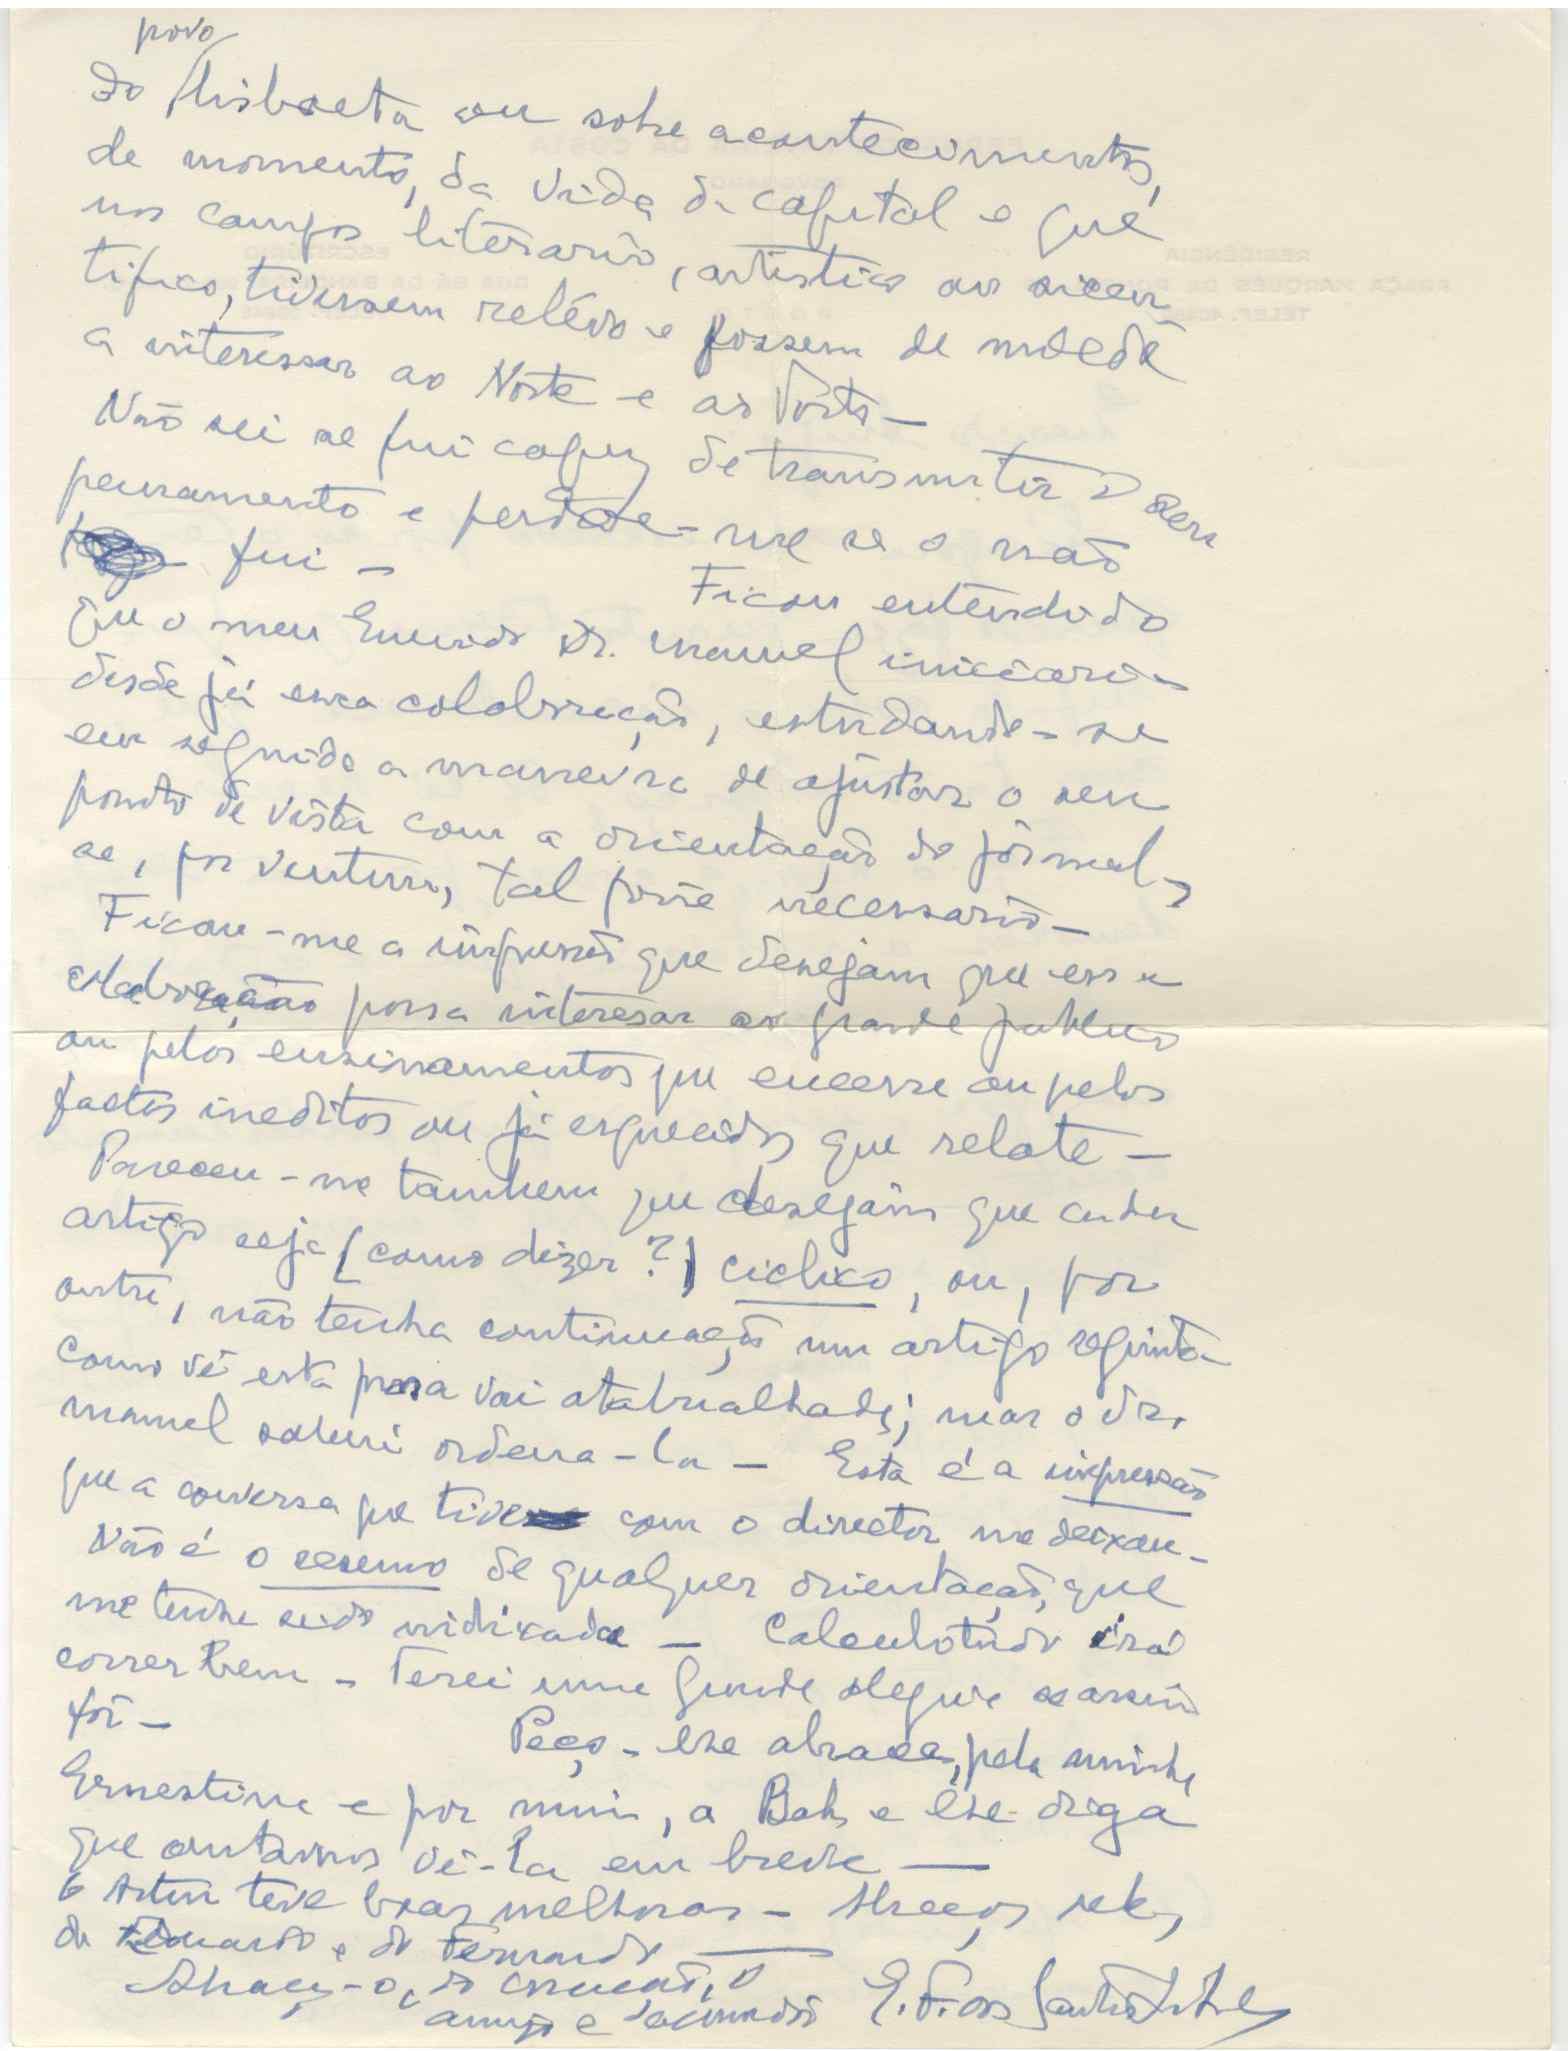 povo
do lisboeta ou sobre acontecimentos,
de momento, da vida da capital e que
nos campos literario, artistico ou scien
tifico, tivessem relêvo e fossem de molde
a interessar ao Norte e ao Porto —
Não sei se fui capaz de transmitir o seu
pensamento e perdoe-me se o não
fui — Ficou entendido
que o meu Querido Dr. Manuel iniciaria
desde já essa colaboração, estudando-se
em seguida a maneira de ajustar o seu
ponto de vista com a orientação do jornal,
se, por ventura, tal fosse necessario —
Ficou-me a impressão que desejam que essa
colaboração possa interesar ao grande publico
ou pelos ensinamentos que encerre ou pelos
factos ineditos ou já esquecidos que relate —
Pareceu-me tambem que desejam que cada
artigo seja (como dizer?) ciclico, ou, por
outra, não tenha continuação num artigo seguinte —
Como vê esta prosa vai atabualhada; mas o Dr.
Manuel saberá ordena-la — Esta é a impressão
que a conversa que tive com o director me deixou —
Não é o resumo de qualquer orientação, que
me tenha sido indicada — Calculo tudo irá
correr bem — Terei uma grande alegria se assim
fôr — Peço-lhe abrace, pela minha
Ernestina e por mim, a Bah e lhe diga
que contamos vê-la em breve —
O Artur teve boas melhoras — Abraços
do Eduardo e do Fernando —
Abraça-o, do coração, o
amigo e